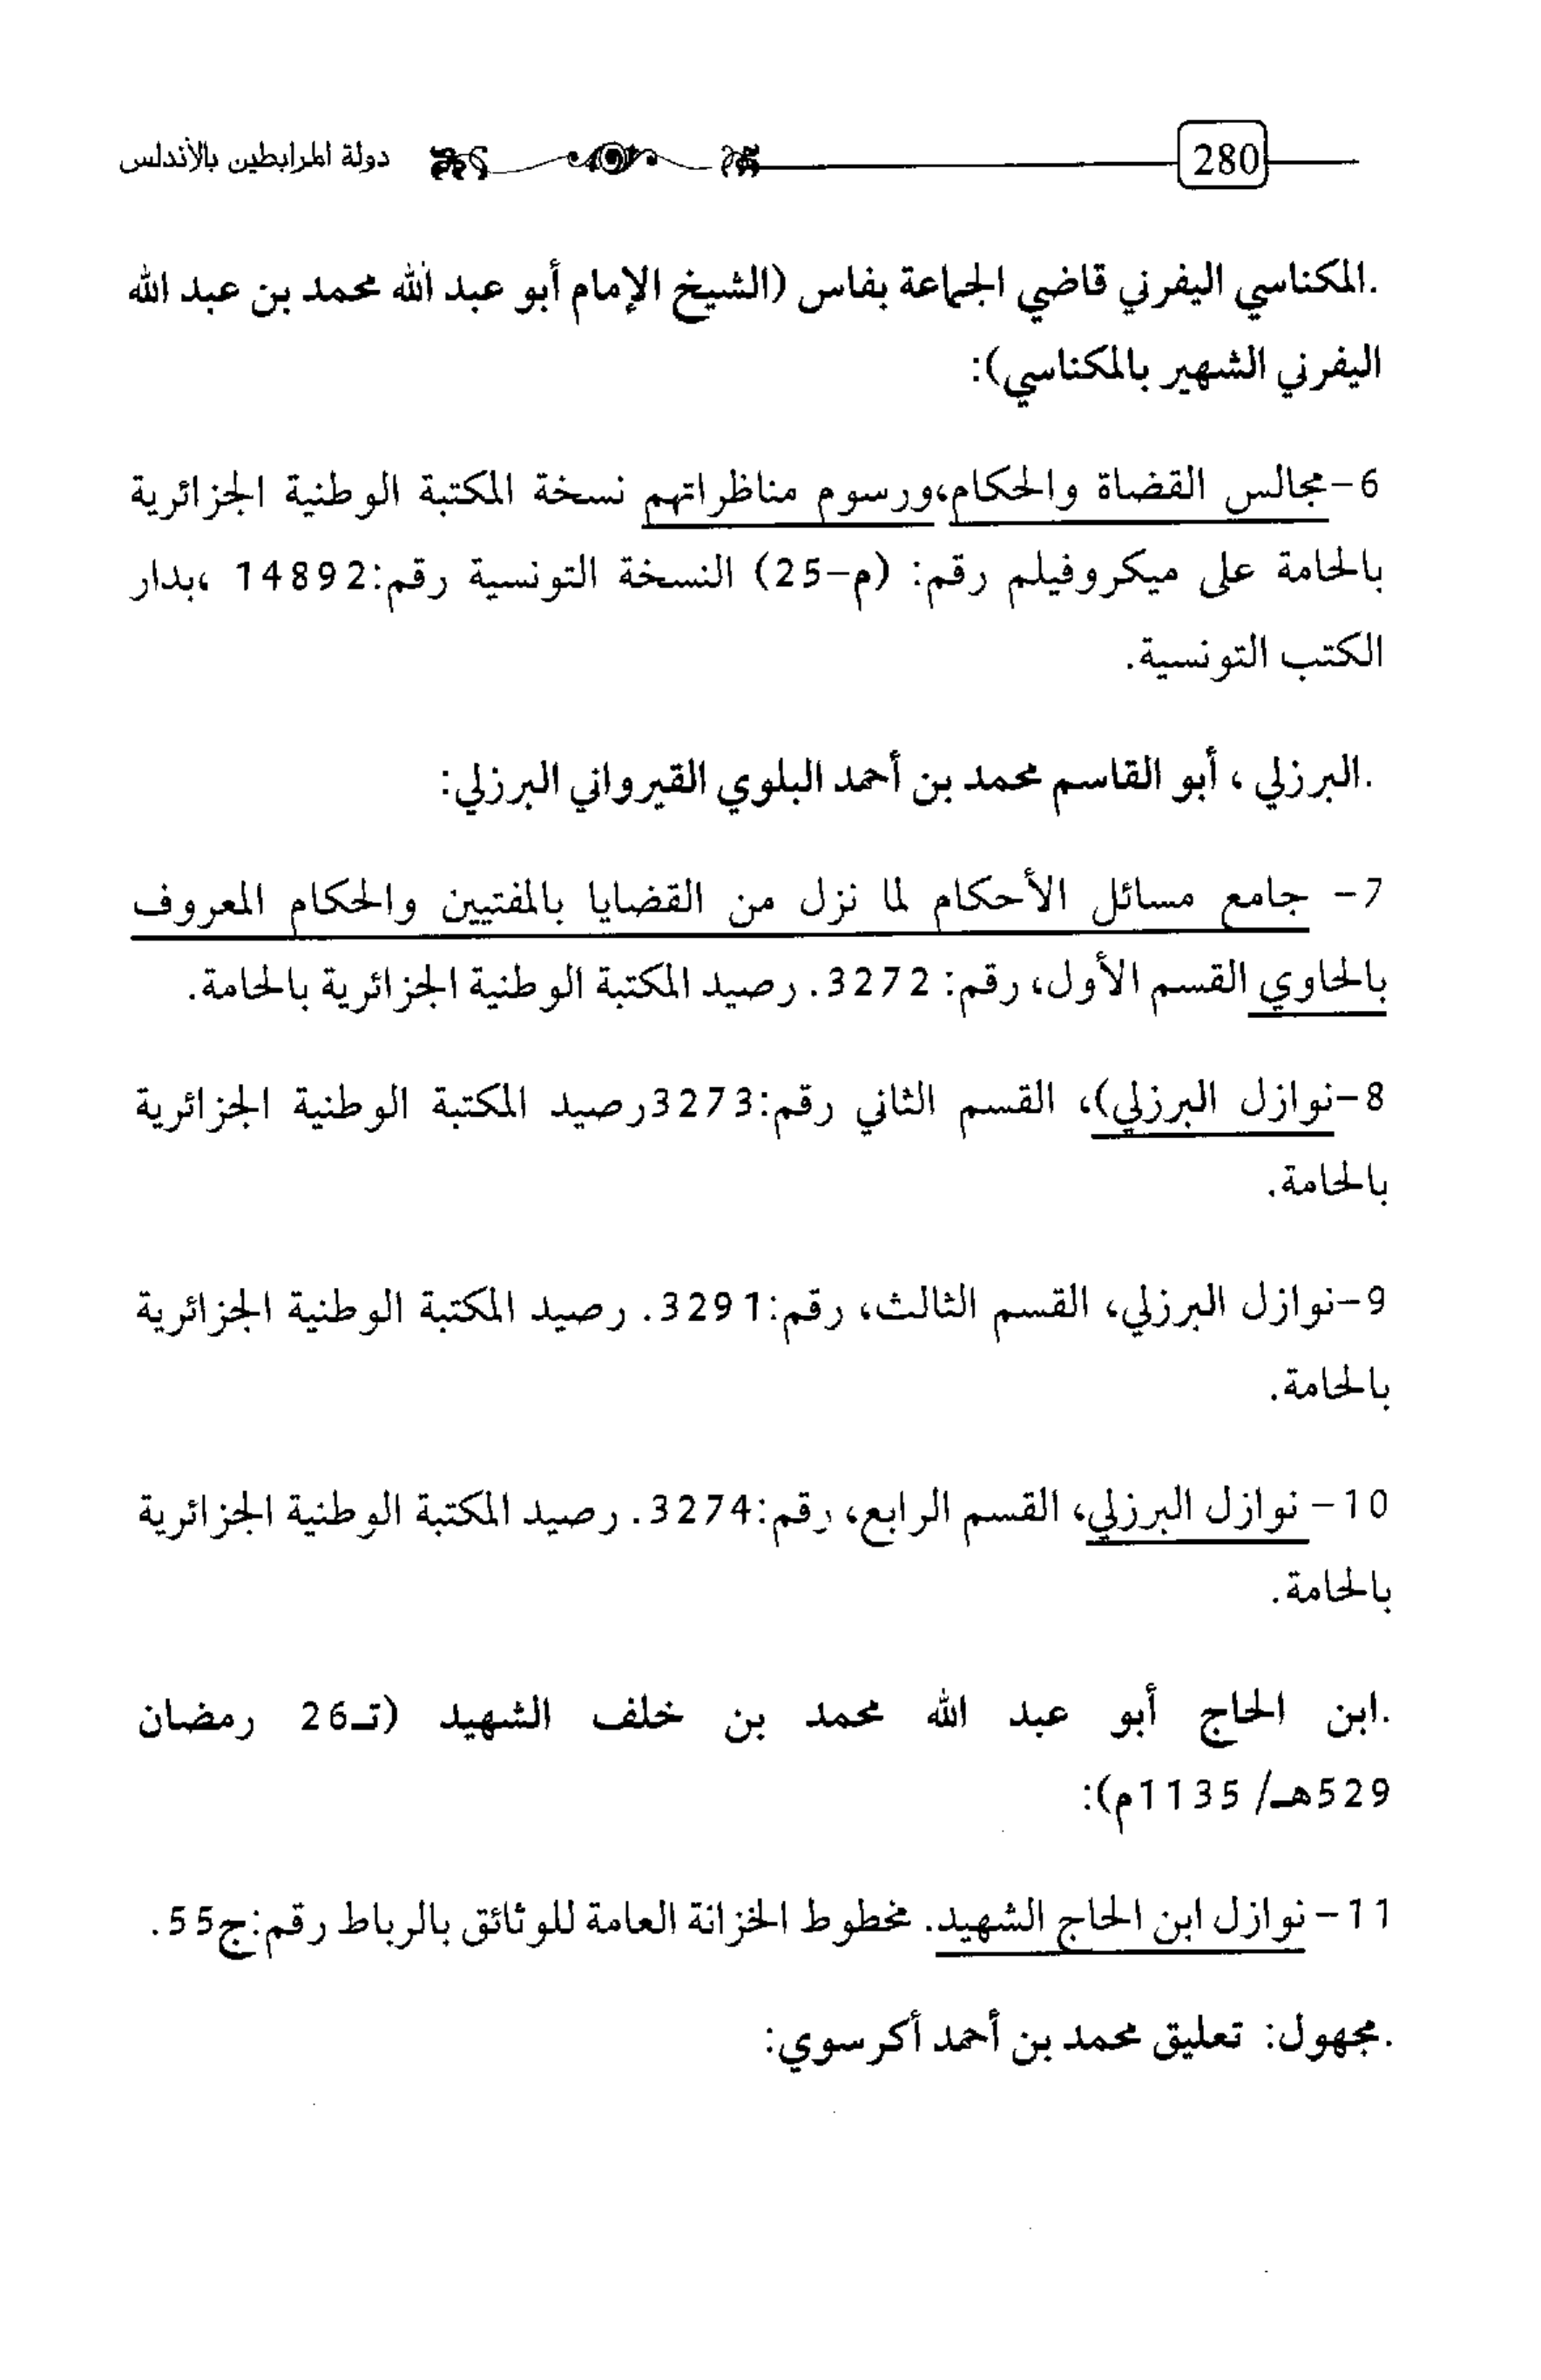 280 دولة المرابطين بالأندلس
.المكناسي اليفرني قاضي الجماعة بفاس (الشيخ الإمام أبو عبد الله محمد بن عبد الله
اليفرني الشهير بالمكناسي):
6-مجالس القضاة والحكام،ورسوم مناظراتهم نسخة المكتبة الوطنية الجزائرية
بالحامة على ميكروفيلم رقم: (م-25) النسخة التونسية رقم:14892 ،بدار
الكتب التونسية.
.البرزلي ، أبو القاسم محمد بن أحمد البلوي القيرواني البرزلي:
7- جامع مسائل الأحكام لما نزل من القضايا بالمفتيين والحكام المعروف
بالحاوي القسم الأول، رقم: 3272. رصيد المكتبة الوطنية الجزائرية بالحامة.
8-نوازل البرزلي)، القسم الثاني رقم:3273رصيد المكتبة الوطنية الجزائرية
بالحامة.
9-نوازل البرزلي، القسم الثالث، رقم:3291. رصيد المكتبة الوطنية الجزائرية
بالحامة.
10- نوازل البرزلي، القسم الرابع، رقم:3274. رصيد المكتبة الوطنية الجزائرية
بالحامة.
.ابن الحاج أبو عبد الله محمد بن خلف الشهيد (تـ26 رمضان
529هـ/ 1135م):
11- نوازل ابن الحاج الشهيد. مخطوط الخزانة العامة للوثائق بالرباط رقم:ج55.
.مجهول: تعليق محمد بن أحمد أكرسوي: